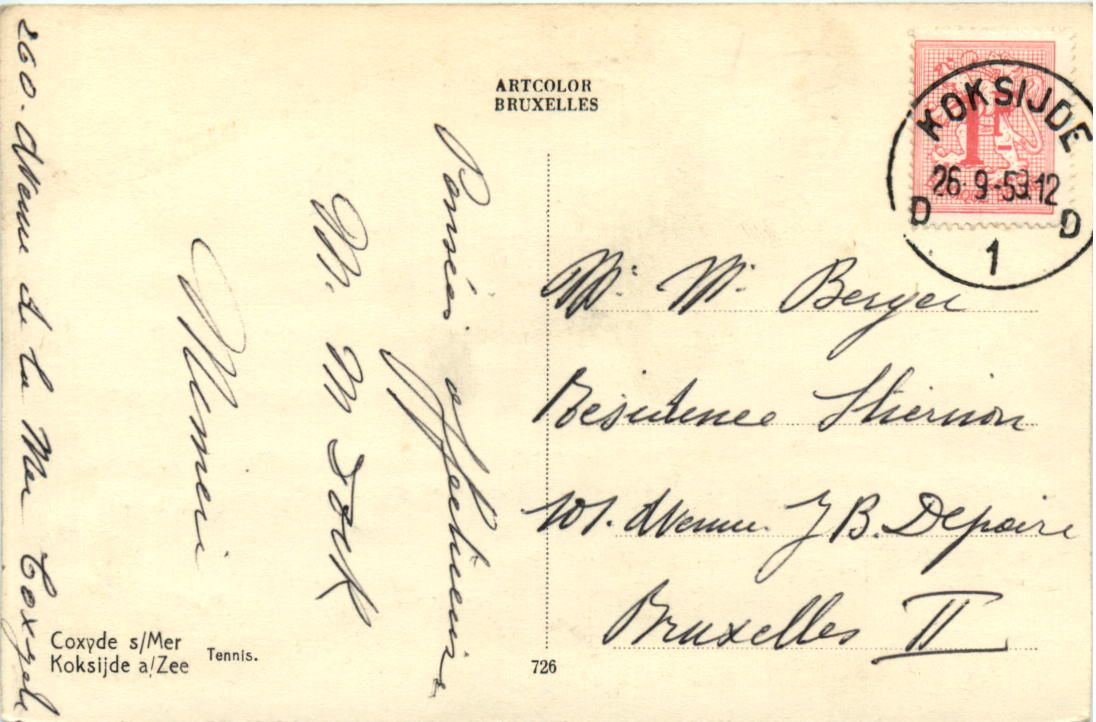 ARTCOLOR
BRUXELLES
KOKSIJDE
26-9-59.12
D D
1
1F
260. Avenue de la Mer Coxyde
Pensées affectueuses
M. M
Mimi
Mr. M. Berger
Résidence Stiernon
101. Avenue J B. Depaire
Bruxelles II
Coxyde s/Mer
Koksijde a/Zee
Tennis.
726